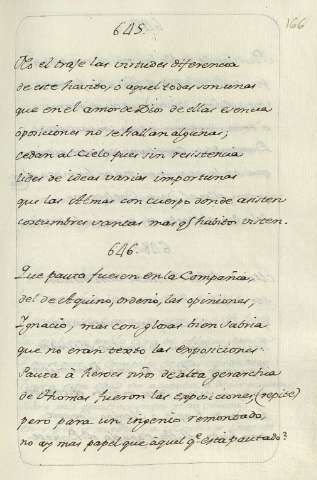 166
645.
No el traje las virtudes diferencia
de este havito, ó aquel todas son unas
que en el amor de Dios de ellas esencia
oposiciones no se hallan algunas;
cedan al Cielo pues sin resistencia
lides de ideas varias importunas
que las Almas con cuerpo donde asisten
costumbres santas mas q.e habito visten.
646.
Que pauta fuesen en la Compañia,
del de Aquino, ordenó, las opiniones,
Ygnacio, mas con glosas bien sabria
que no eran texto las exposiciones.
Pauta à heroes nros de alta gerarchia
de Thomas fueron las exposiciones, (repite)
pero para un ingenio remontado
no ay mas papel que aquel q.e está pautado?